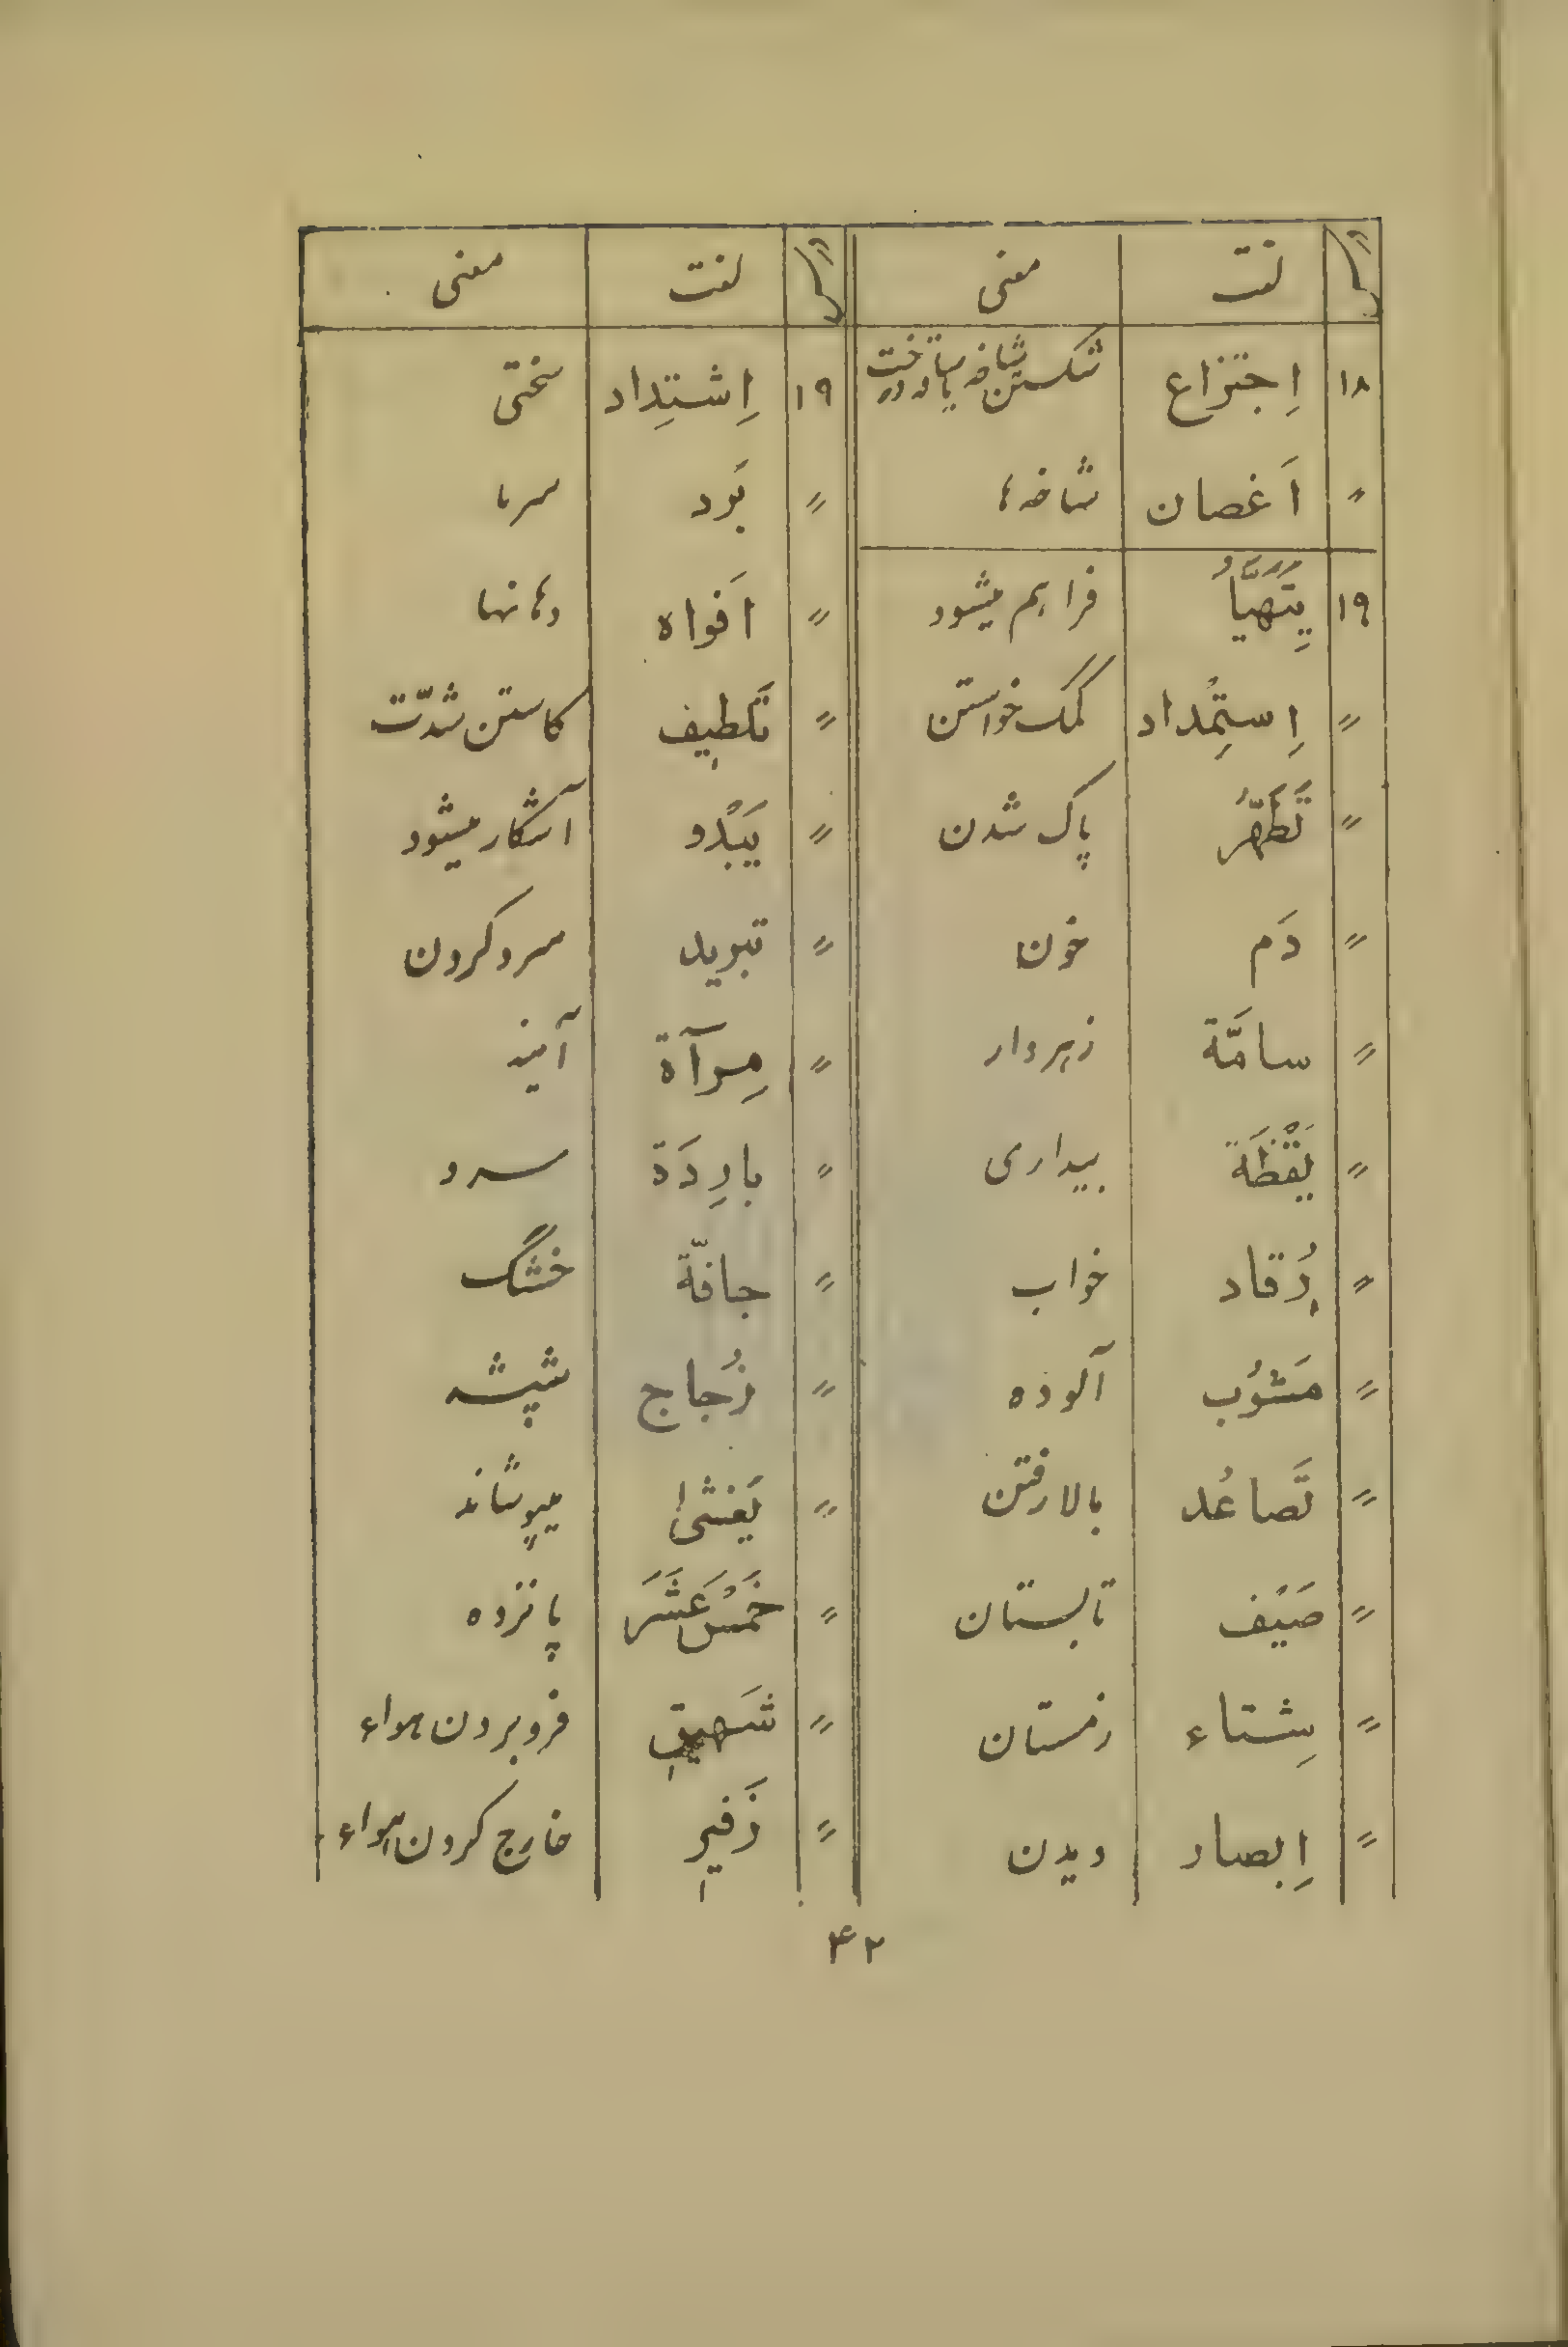 درس لغت معنی درس لغت معنی
۱۸ اِجتزاع شکستن شاخه یا ساقه درخت
〃 اَغصان شاخه‌ها
۱۹ یَتَهَیَّأُ فراهم میشود
〃 اِستِمْداد کمک خواستن
〃 تَطَهُّر پاک شدن
〃 دَم خون
〃 سامَّة زهردار
〃 یَقْظَة بیداری
〃 رُقاد خواب
〃 مَشوُب آلوده
〃 تَصاعُد بالا رفتن
〃 صَیْف تابستان
〃 شِتاء زمستان
〃 اِبصار دیدن
۱۹ اِشتِداد سختی
〃 بَرد سرما
〃 اَفواه دهانها
〃 تَلطیف کاستن شدّت
〃 یَبْدو آشکار میشود
〃 تبرید سرد کردن
〃 مِرآة آینه
〃 بارِدَة سرد
〃 جافّة خشک
〃 زُجاج شیشه
〃 یَغشیٰ میپوشاند
〃 خَمْسَ عَشَرَ پانزده
〃 شَهیق فرو بردن هواء
〃 زَفیر خارج کردن هواء
۴۲